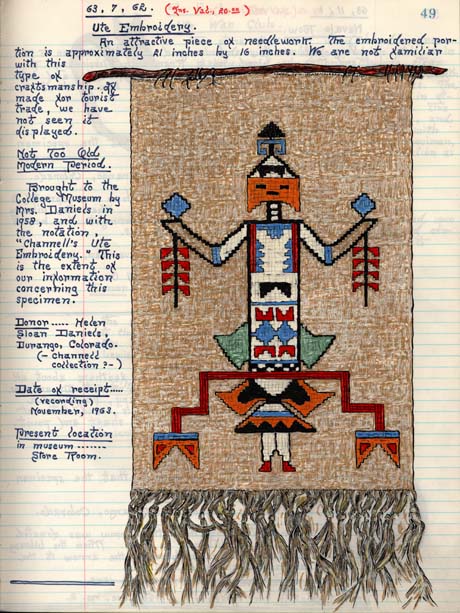 63, 7, 62. (Ins. Val., 20.00)
49
Ute Embroidery.
An attractive piece of needlework. The embroidered por-
tion is approximately 21 inches by 16 inches. We are not familiar
with this
type of
craftsmanship. If
made for tourist
trade, we have
not seen it
displayed.
Not Too Old
Modern Period.
Brought to the
College Museum by
Mrs. Daniels in
1958, and with
the notation,
"Channell's Ute
Embroidery." This
is the extent of
our information
concerning this
specimen.
Donor ..... Helen
Sloan Daniels,
Durango, Colorado.
(- channell
collection ? -)
Date of receipt.....
(recording)
November, 1963.
Present location
in museum .......
Store Room.